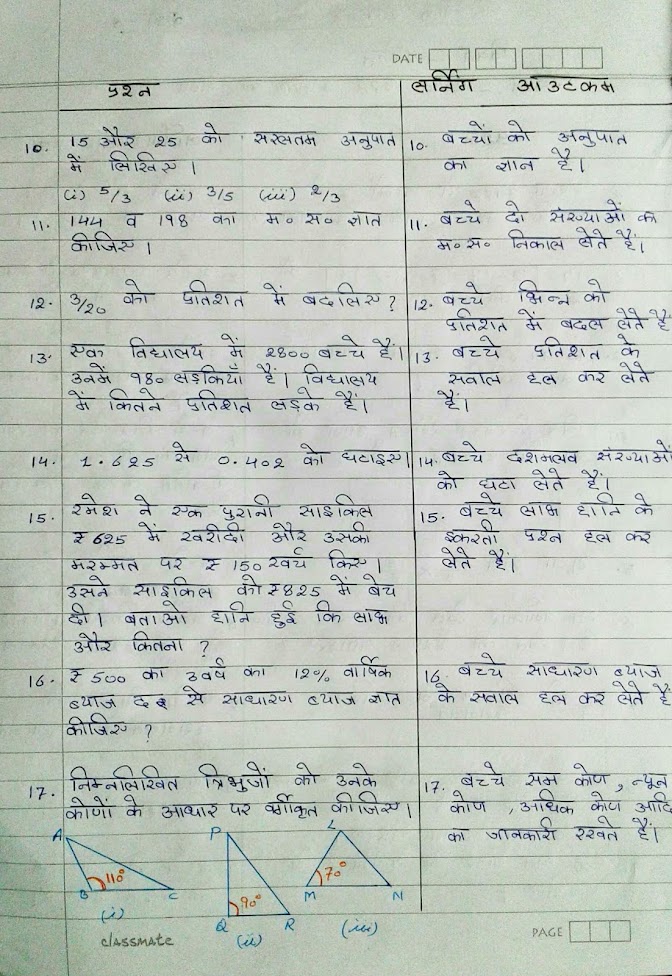 DATE
प्रश्न
लर्निंग आउटकम
10. 15 और 25 को सरलतम अनुपात
में लिखिए ।
(i) 5/3 (ii) 3/5 (iii) 2/3
10. बच्चों को अनुपात
का ज्ञान है।
11. 144 व 198 का म॰ स॰ ज्ञात
कीजिए ।
11. बच्चे दो संख्याओं का
म॰ स॰ निकाल लेते हैं।
12. 3/20 को प्रतिशत में बदलिए ?
12. बच्चे भिन्न को
प्रतिशत में बदल लेते हैं
13. एक विद्यालय में 2800 बच्चे हैं।
उनमें 980 लड़कियाँ हैं। विद्यालय
में कितने प्रतिशत लड़के हैं।
13. बच्चे प्रतिशत के
सवाल हल कर लेते
हैं।
14. 1.625 से 0.402 को घटाइए।
14. बच्चे दशमलव संख्याओं
को घटा लेते हैं।
15. रमेश ने एक पुरानी साइकिल
₹ 625 में खरीदी और उसकी
मरम्मत पर ₹ 150 खर्च किए।
उसने साइकिल को ₹ 825 में बेच
दी। बताओ हानि हुई कि लाभ
और कितना ?
15. बच्चे लाभ हानि के
इकरती प्रश्न हल कर
लेते हैं।
16. ₹ 500 का 3 वर्ष का 12% वार्षिक
ब्याज दर से साधारण ब्याज ज्ञात
कीजिए ?
16. बच्चे साधारण ब्याज
के सवाल हल कर लेते हैं
17. निम्नलिखित त्रिभुजों को उनके
कोणों के आधार पर वर्गीकृत कीजिए।
17. बच्चे सम कोण, न्यून
कोण, अधिक कोण आदि
का जानकारी रखते हैं।
A 110° B C
(i)
P 90° Q R
(ii)
L 70° M N
(iii)
classmate
PAGE